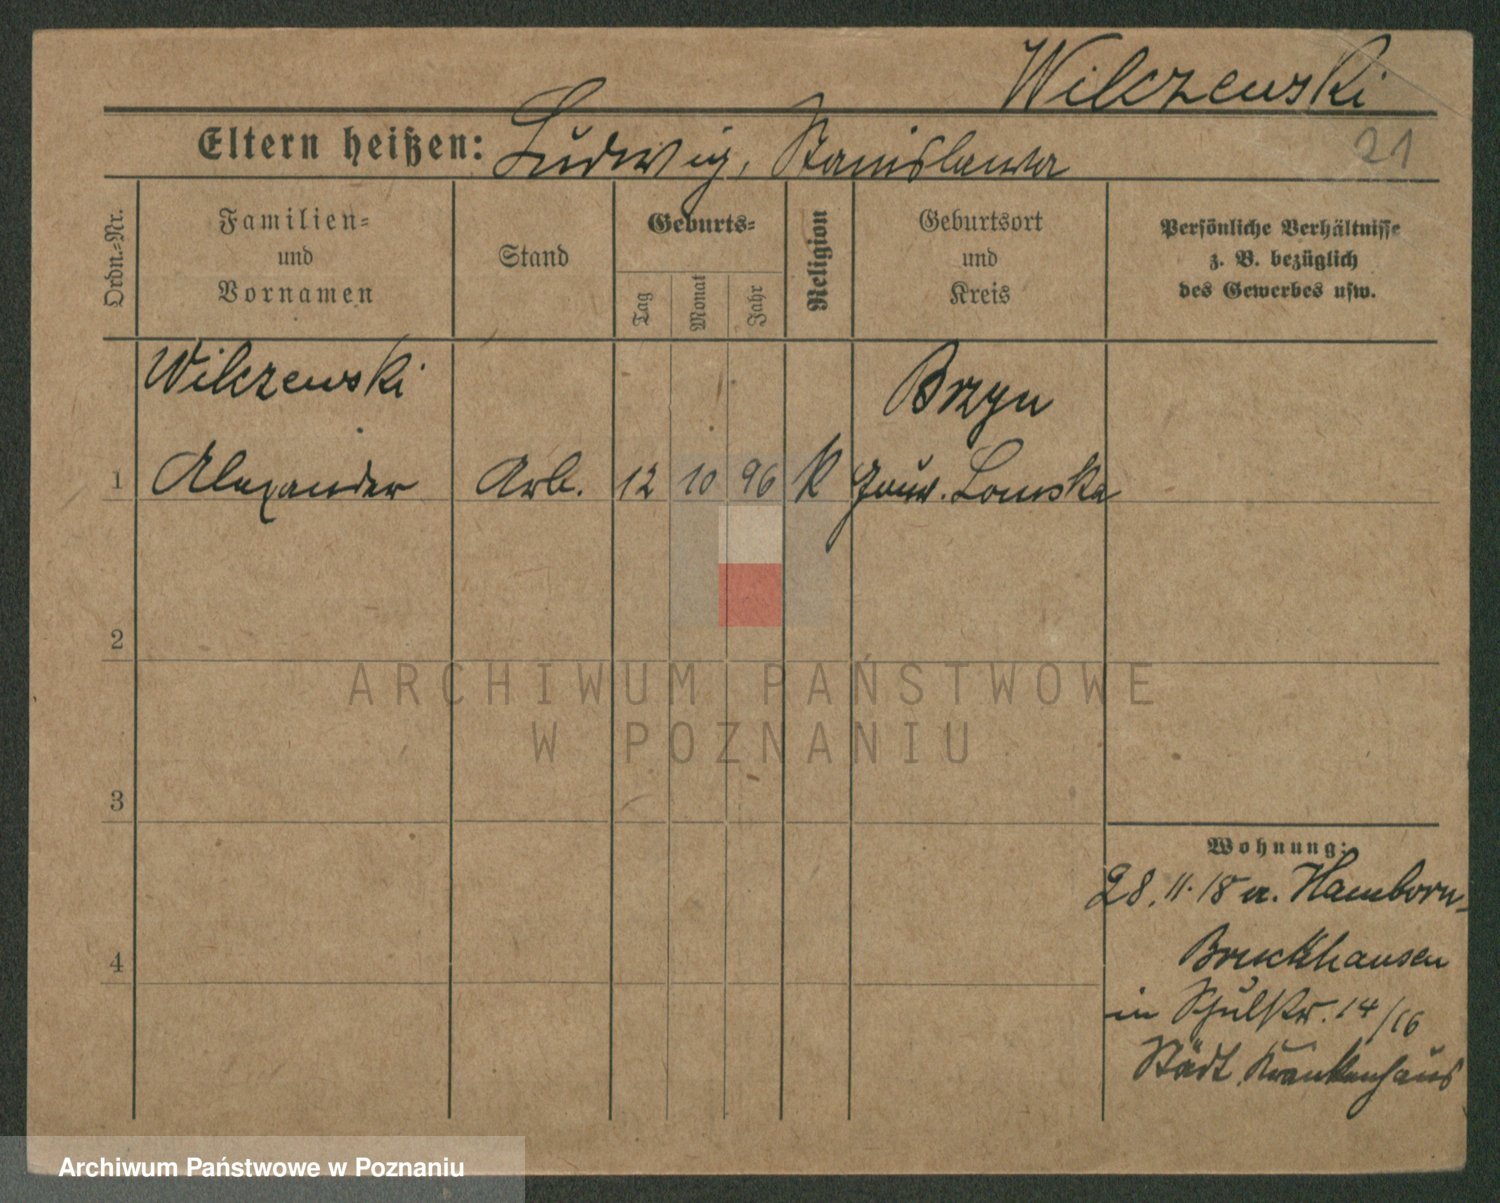 Wilczewski
21
Eltern heißen: Ludwig, Stanislawa
Ordn.=Nr.
Familien=
und
Vornamen
Stand
Geburts=
Tag
Monat
Jahr
Religion
Geburtsort
und
Kreis
Persönliche Verhältnisse
z. B. bezüglich
des Gewerbes usw.
Wilczewski
Brzyn
1 Alexander Arb. 12 10 96 K Gouv. Lomska
2
3
4
Wohnung:
28.11.18 a. Hamborn-
Bruckhausen
in Schulstr. 14/16
Städt. Krankenhaus
ARCHIWUM PAŃSTWOWE
W POZNANIU
Archiwum Państwowe w Poznaniu